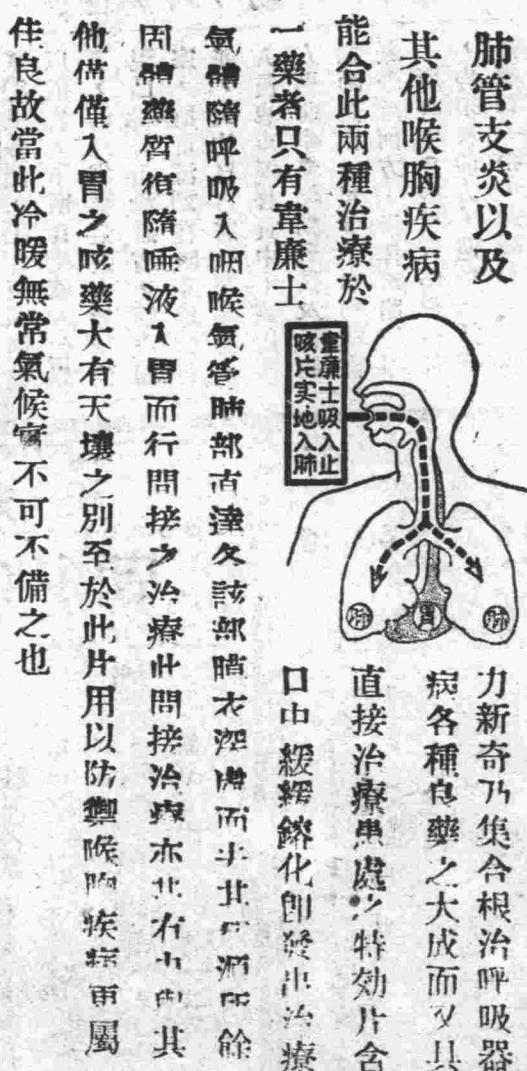 肺管支炎以及
其他喉胸疾病
能合此兩種治療於
一藥者只有韋廉士
韋廉士吸入止
咳片实地入肺
肺
胃
肺
力新奇乃集合根治呼吸器
病各種良藥之大成而又具
直接治療患處之特効片含
口中緩緩鎔化卽發出治療
氣體隨呼吸入咽喉氣管肺部直達 該部 衣 而 餘
固體藥質復隨唾液入胃而行間接之治療此間接治療亦 其
他僅入胃之咳藥大有天壤之別至於此片用以防禦喉胸疾病更屬
佳良故當此冷暖無常氣候實不可不備之也